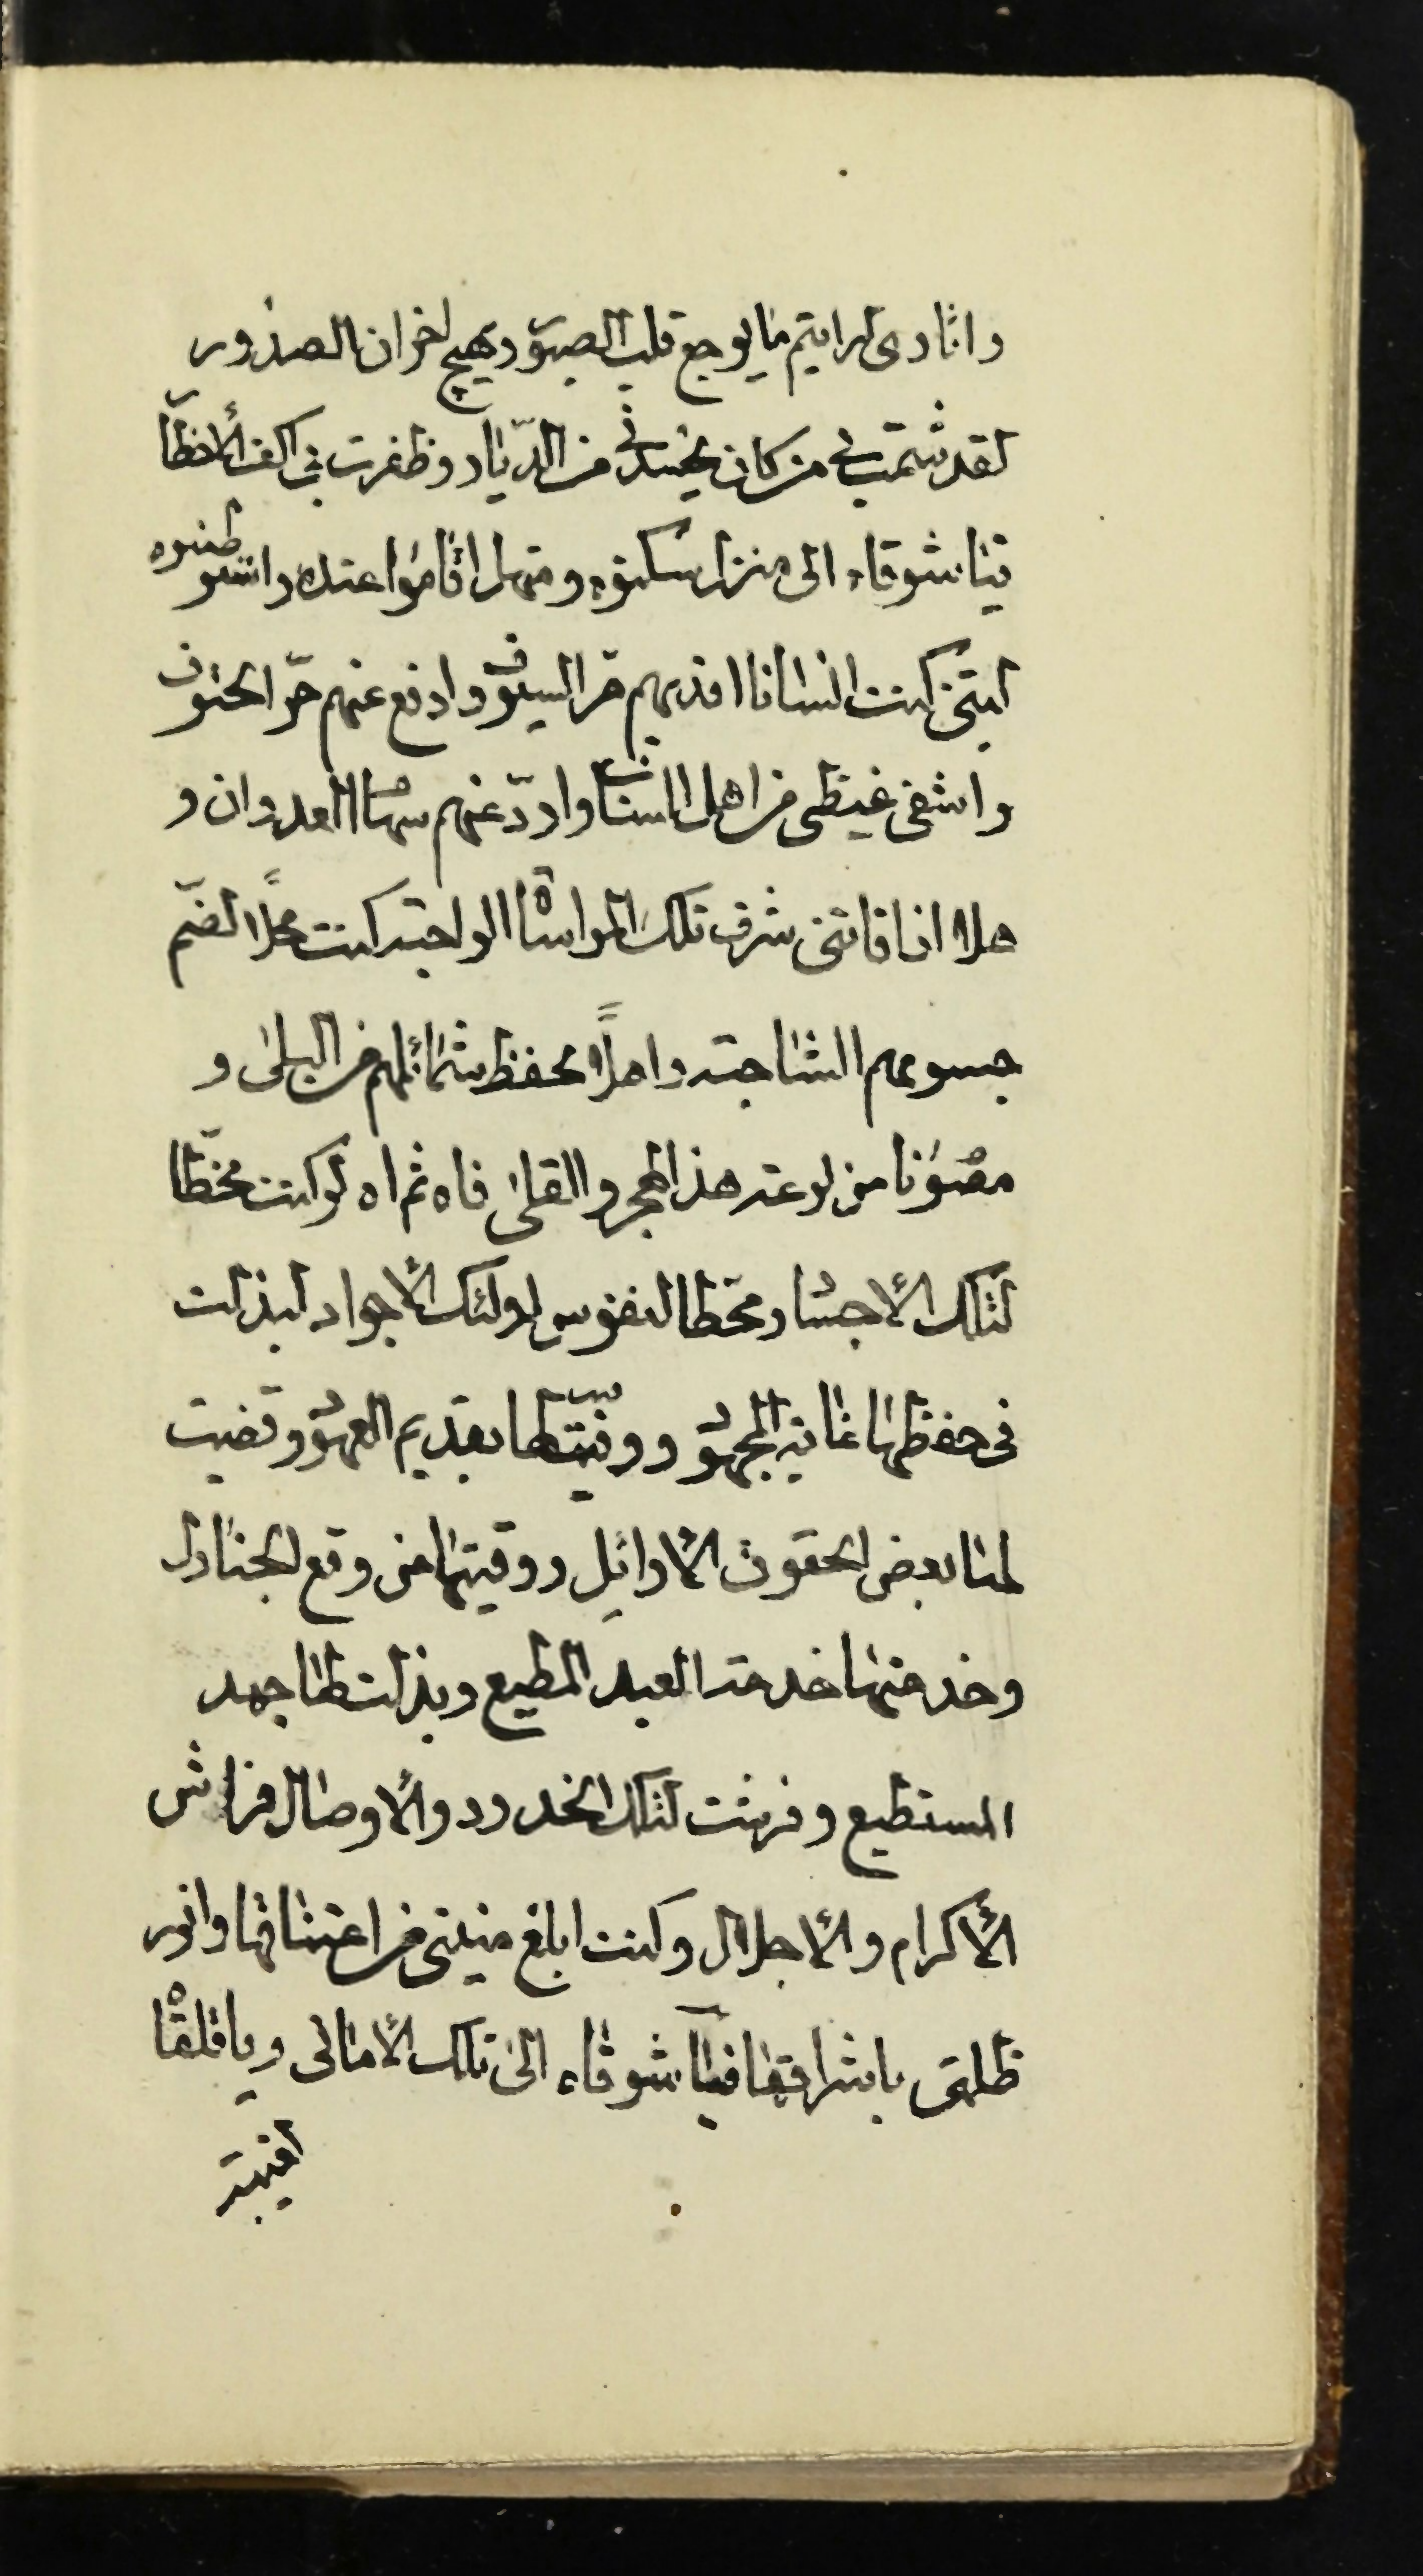 وانادی لرایتم ما یوجع قلب الصبور و یهیج احزان الصدور
لقد شمت بی من کان یحسدنی من الدیار و ظفرت بی اکف الاخطا
فیا شوقاه الی منزل سکنوه و منهل اقاموا عنده و استوطنوه
لیتنی کنت انسانا افدیهم حر السیوف و ادفع عنهم حر الحتوف
و اشفی غیظی من اهل الشنآن و اردّ عنهم سهام العدوان و
هلا اذ فاتنی شرف تلک المواساة الواجبة کنت محلًا لضمّ
جسومهم الشاحبة و اهلًا لحفظ شمائلهم من البلی و
مصونا من لوعة هذا الهجر و القلی فاه ثم اه لو کنت مخطّا
لتلک الأجساد و محطّا لنفوس اولئک الأجواد لبذلت
فی حفظها غایة المجهود و وفیت لها بقدیم العهود و قضیت
لها بعض الحقوق الأوائل و وقیتها من وقع الجنادل
و خدمتها خدمة العبد المطیع و بذلت لها جهد
المستطیع و فرشت لتلک الخدود و الأوصال فراش
الأکرام و الأجلال و کنت ابلغ منیتی من اعتناقها و انور
ظلمتی باشراقها فیا شوقاه الی تلک الأمانی و یا قلقاه
لغیبة